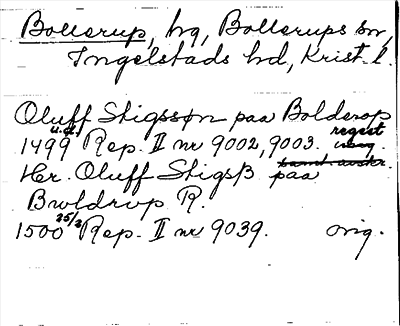 Bollerup, hg, Bollerups sn,
Ingelstads hd, Krist. l.
Oluff Stigssøn paa Bolderop
1499 u.d. Rep. II nr 9002, 9003. regest
Her. Oluff Stigsß paa
Bwldrvp R.
1500 25/2 Rep. II nr 9039. orig.